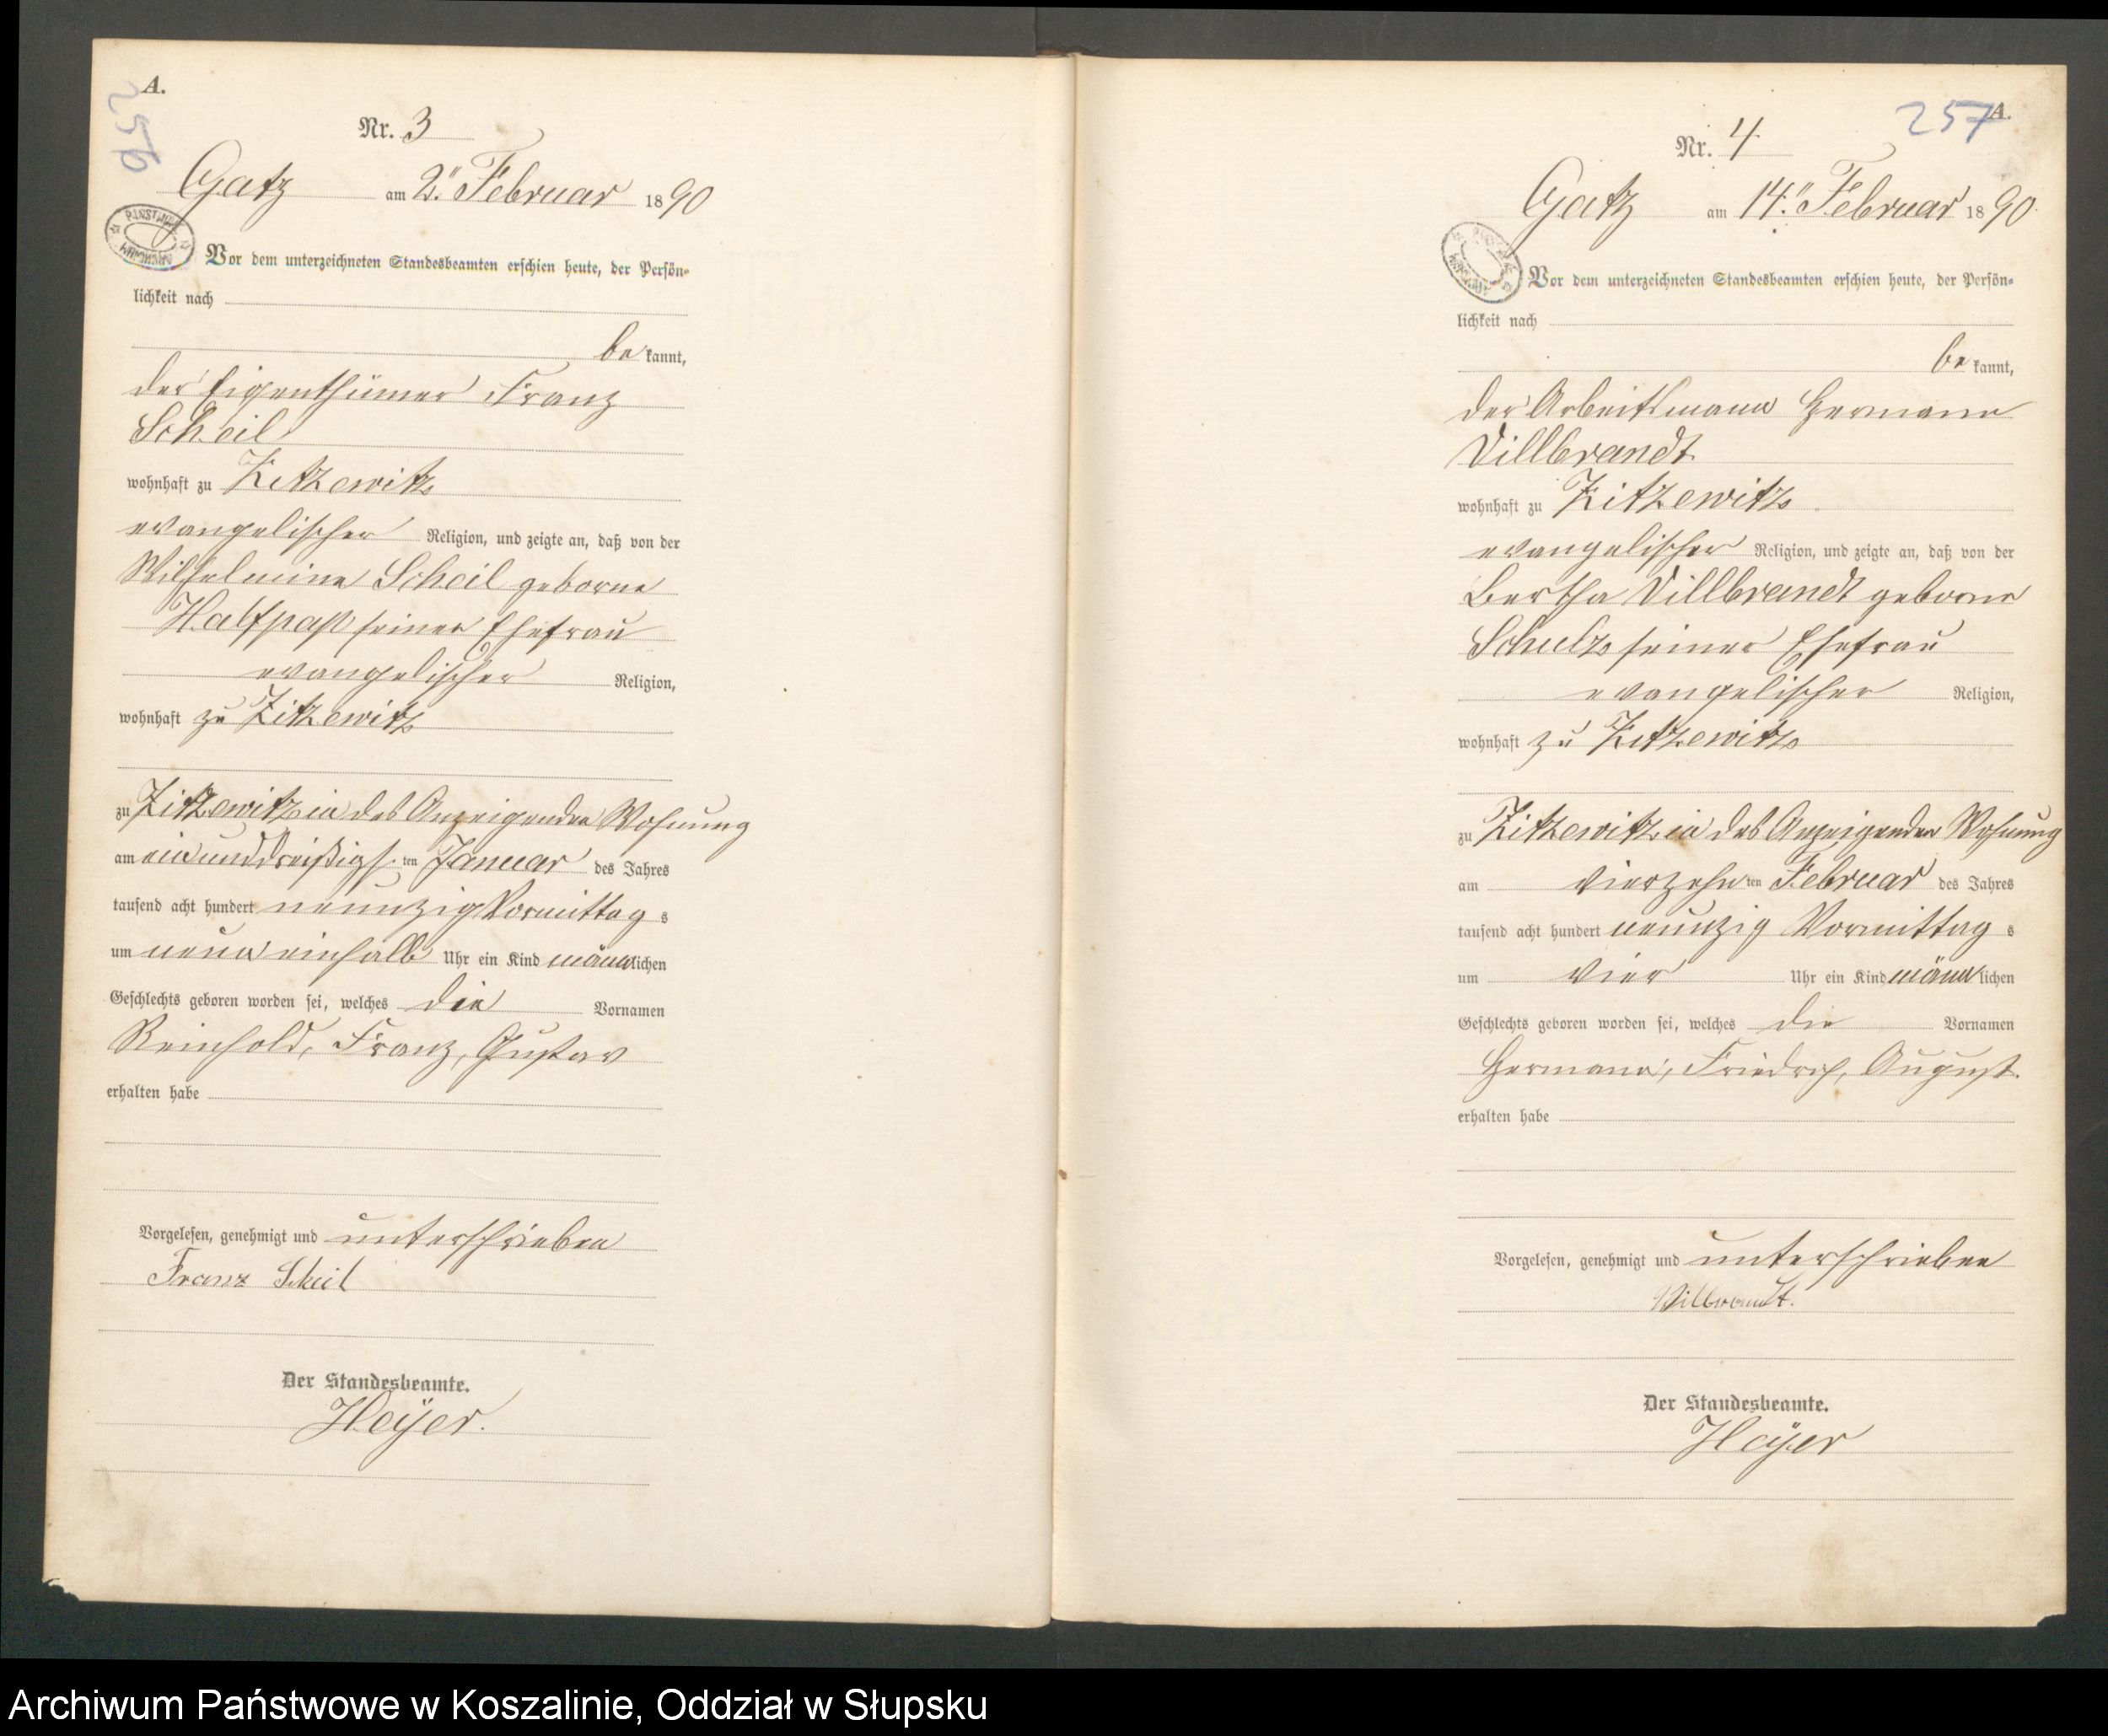 A.
256
Nr. 3
Gatz am 2.ten Februar 1890
Vor dem unterzeichneten Standesbeamten erschien heute, der Persön-
lichkeit nach
be kannt,
der Eigenthümer Franz
Scheil
wohnhaft zu Zitzewitz
evangelischer Religion, und zeigte an, daß von der
Wilhelmine Scheil geborne
Halfpaß seiner Ehefrau
evangelischer Religion,
wohnhaft zu Zitzewitz
zu Zitzewitz in des Anzeigenden Wohnung
am einunddreißigsten Januar des Jahres
tausend acht hundert neunzig Vormittags
um neun einhalb Uhr ein Kind männlichen
Geschlechts geboren worden sei, welches die Vornamen
Reinhold, Franz, Gustav
erhalten habe
Vorgelesen, genehmigt und unterschrieben
Franz Scheil
Der Standesbeamte.
Heÿer.
257
A.
Nr. 4
Gatz am 14.ten Februar 1890
Vor dem unterzeichneten Standesbeamten erschien heute, der Persön-
lichkeit nach
be kannt,
der Arbeitsmann Hermann
Villbrandt
wohnhaft zu Zitzewitz
evangelischer Religion, und zeigte an, daß von der
Bertha Villbrandt geborne
Schulz seiner Ehefrau
evangelischer Religion,
wohnhaft zu Zitzewitz
zu Zitzewitz in des Anzeigenden Wohnung
am vierzehnten Februar des Jahres
tausend acht hundert neunzig Vormittags
um vier Uhr ein Kind männlichen
Geschlechts geboren worden sei, welches die Vornamen
Hermann, Friedrich, August.
erhalten habe
Vorgelesen, genehmigt und unterschrieben
Villbrandt.
Der Standesbeamte.
Heÿer
Archiwum Państwowe w Koszalinie, Oddział w Słupsku